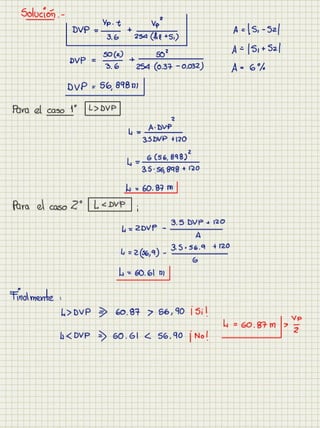 Solución.-
DVP = Vp.t / 3.6 + Vp² / 254 (δt +Si)
A = |S1 - S2|
DVP = 50(2) / 3.6 + 50² / 254 (0.37 - 0.032)
A = |S1 + S2|
A = 6 %
DVP = 56,898 m
Para el caso 1° L > DVP
L = A.DVP² / 3.5DVP + 120
L = 6 (56,898)² / 3.5 · 56,898 + 120
L = 60.87 m
Para el caso 2° L < DVP ;
L = 2DVP - 3.5 DVP + 120 / A
L = 2(56,9) - 3.5 · 56.9 + 120 / 6
L = 60.61 m
Finalmente :
L > DVP ⇒ 60.87 > 56,90 ¡Si!
L = 60.87 m > Vp / 2
L < DVP ⇒ 60.61 < 56.90 ¡No!